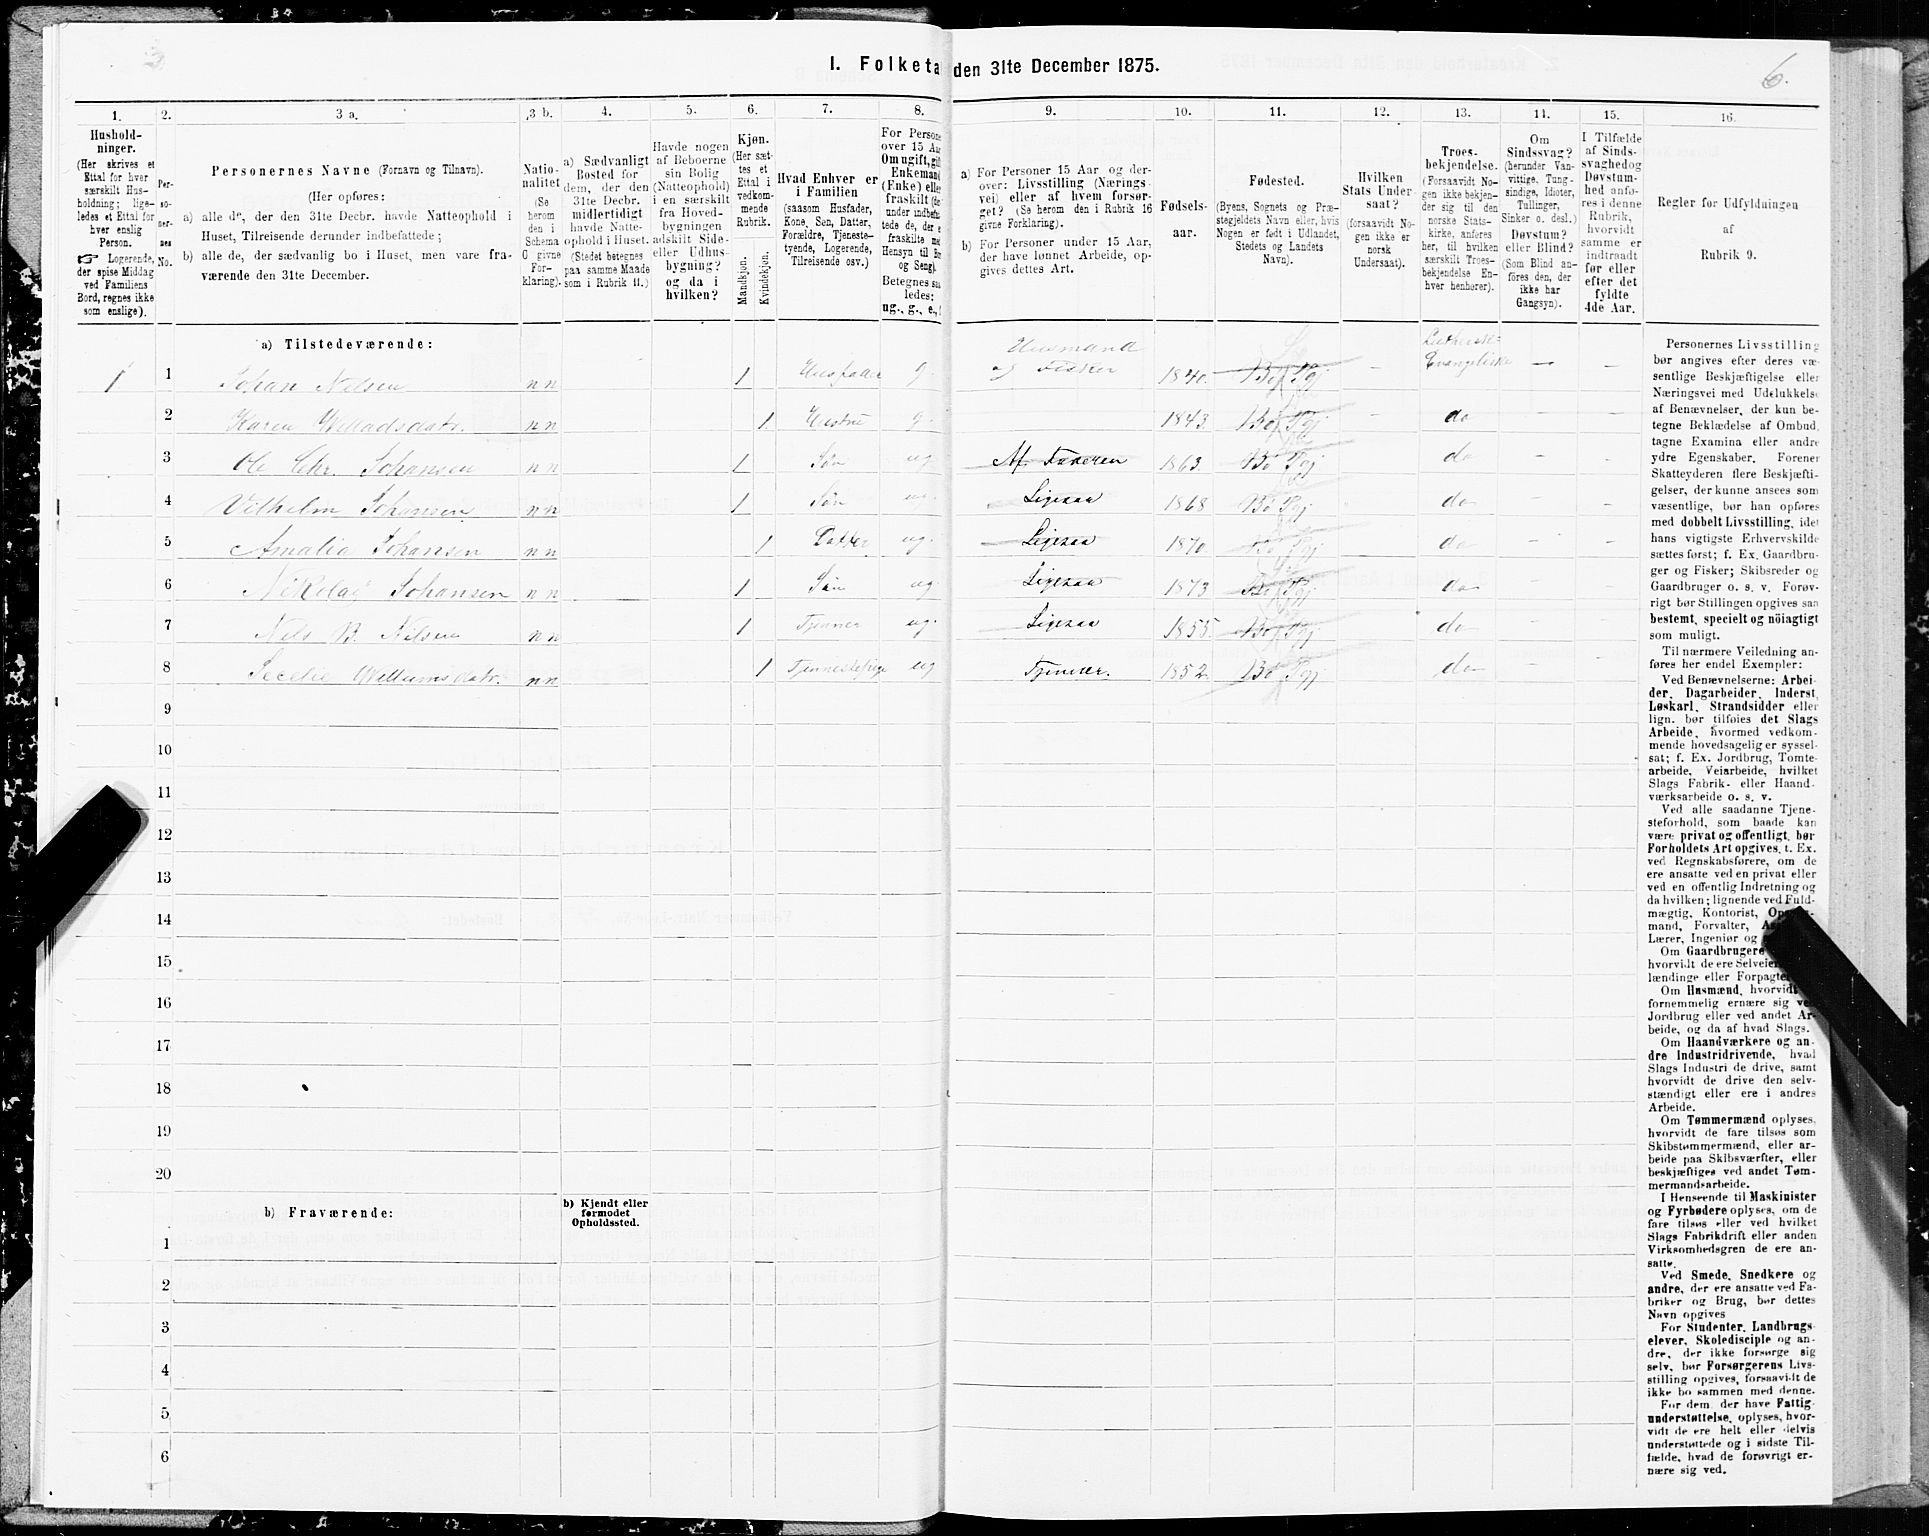 I. Folketa den 31te December 1875.
6.
1. 2. 3 a. 3 b. 4. 5. 6. 7. 8. 9. 10. 11. 12. 13. 14. 15. 16.
Hushold-
ninger.
(Her skrives et
Ettal for hver
særskilt Hus-
holdning; lige-
ledes et Ettal for
hver enslig
Person.
☞ Logerende,
der spise Middag
ved Familiens
Bord, regnes ikke
som enslige).
Per-
so-
ner-
nes
No.
Personernes Navne (Fornavn og Tilnavn).
(Her opføres:
a) alle de, der den 31te Decbr. havde Natteophold i
Huset, Tilreisende derunder indbefattede;
b) alle de, der sædvanlig bo i Huset, men vare fra-
værende den 31te December.
Natio-
nalitet
(Se
herom
den i
Schema
O givne
For-
klaring).
a) Sædvanligt
Bosted for
dem, der den
31te Decbr.
midlertidigt
havde Natte-
ophold i Huset.
(Stedet betegnes
paa samme Maade
som i Rubrik 11.)
Havde nogen
af Beboerne
sin Bolig
(Natteophold)
i en særskilt
fra Hoved-
bygningen
adskilt Side-
eller Udhus-
bygning?
og da i
hvilken?
Kjøn.
(Her sæt-
tes et
Ettal i
vedkom-
mende
Rubrik.
Mandkjøn.
Kvindekjøn.
Hvad Enhver er
i Familien
(saasom Husfader,
Kone, Søn, Datter,
Forældre, Tjeneste-
tyende, Logerende,
Tilreisende osv.)
For Persone
over 15 Aar
Om ugift, gif
Enkemand
(Enke) elle
fraskilt (de
under indbefat
tede de, der e
fraskilte med
Hensyn til Bo
og Seng).
Betegnes saa
ledes:
ug., g., e.,
a) For Personer 15 Aar og der-
over: Livsstilling (Nærings-
vei) eller af hvem forsør-
get? (Se herom den i Rubrik 16
givne Forklaring).
b) For Personer under 15 Aar,
der have lønnet Arbeide, op-
gives dettes Art.
Fødsels-
aar.
Fødested.
(Byens, Sognets og Præ-
stegjeldets Navn eller, hvis
Nogen er født i Udlandet,
Stedets og Landets
Navn).
Hvilken
Stats Under-
saat?
(forsaavidt No-
gen ikke er
norsk
Undersaat).
Troes-
bekjendelse.
(Forsaavidt No-
gen ikke bekjen-
der sig til den
norske Stats-
kirke, anføres
her, til hvilken
særskilt Troes-
bekjendelse En-
hver henhører).
Om
Sindssvag?
(herunder Van-
vittige, Tung-
sindige, Idioter,
Tullinger,
Sinker o. desl.)
Døvstum?
eller Blind?
(Som Blind an-
føres den, der
ikke har
Gangsyn).
I Tilfælde
af Sinds-
svaghedog
Døvstum-
hed anfø-
res i denne
Rubrik,
hvorvidt
samme er
indtraadt
før eller
efter det
fyldte
4de Aar.
Regler for Udfyldningen
af
Rubrik 9.
a) Tilstedeværende:
1 1 Johan Nilsen nn 1 Husfader g. Husmand og Fisker 1840. Bø Pgj - Lutherske Evangeliske - -
2 Karen Willadsdatr. nn 1 Hustru g. 1843. Bø Pgj - do - -
3 Ole Chr. Johansen nn 1 Søn ug Af Faderen 1863. Bø Pgj do - -
4 Vilhelm Johansen nn 1 Søn ug. Ligesaa 1868 Bø Pgj do - -
5 Amalia Johansen nn 1 Datter ug. Ligesaa 1870. Bø Pgj do - -
6 Nikolai Johansen nn 1 Søn ug. Ligesaa 1873 Bø Pgj do - -
7 Nils B. Nilsen nn 1 Tjener ug. Ligesaa 1855. Bø Pgj do - -
8 Secelie Willumsdatr. nn 1 Tjenestepige ug Tjener. 1852. Bø Pgj do - -
9
10
11
12
13
14
15
16
17
18
19
20
b) Fraværende:
b) Kjendt eller
formodet
Opholdssted.
1
2
3
4
5
6
Personernes Livsstilling
bør angives efter deres væ-
sentlige Beskjæftigelse eller
Næringsvei med Udelukkelse
af Benævnelser, der kun be-
tegne Beklædelse af Ombud,
tagne Examina eller andre
ydre Egenskaber. Forener
Skatteyderen flere Beskjæfti-
gelser, der kunne ansees som
væsentlige, bør han opføres
med dobbelt Livsstilling, idet
hans vigtigste Erhvervskilde
sættes først; f. Ex. Gaardbru-
ger og Fisker; Skibsreder og
Gaardbruger o. s. v. Forøv-
rigt bør Stillingen opgives saa
bestemt, specielt og nöiagtigt
som muligt.
Til nærmere Veiledning an-
føres her endel Exempler:
Ved Benævnelserne: Arbei-
der, Dagarbeider, Inderst,
Løskarl, Strandsidder eller
lign. bør tilføies det Slags
Arbeide, hvormed vedkom-
mende hovedsagelig er syssel-
sat; f. Ex. Jordbrug, Tomte-
arbeide, Veiarbeide, hvilket
Slags Fabrik- eller Haand-
værksarbeide o. s. v.
Ved alle saadanne Tjene-
steforhold, som baade kan
være privat og offentligt, bør
Forholdets Art opgives, t. Ex.
ved Regnskabsførere, om de
ere ansatte ved en privat eller
ved en offentlig Indretning og
da hvilken; lignende ved Fuld-
mægtig, Kontorist, Op
mand, Forvalter,
Lærer, Ingeniør og
Om Gaardbrugere
hvorvidt de ere Selveier
lændinge eller Forpagte
Om Husmænd, hvorvidt
fornemmelig ernære sig ved
Jordbrug eller ved andet Ar-
beide, og da af hvad Slags.
Om Haandværkere og an-
dre Industridrivende, hvad
Slags Industri de drive, samt
hvorvidt de drive den selv-
stændigt eller ere i andres
Arbeide.
Om Tømmermænd oplyses,
hvorvidt de fare tilsøs som
Skibstømmermænd, eller ar-
beide paa Skibsværfter, eller
beskjæftiges ved andet Tøm-
mermandsarbeide.
I Henseende til Maskinister
og Fyrbødere oplyses, om de
fare tilsøs eller ved hvilket
Slags Fabrikdrift eller anden
Virksomhedsgren de ere an-
satte.
Ved Smede, Snedkere og
andre, der ere ansatte ved Fa-
briker og Brug, bør dettes
Navn opgives
For Studenter, Landbrugs-
elever, Skoledisciple og an-
dre, der ikke forsørge sig
selv, bør Forsørgerens Livs-
stilling opgives, forsaavidt de
ikke bo sammen med denne.
For dem, der have Fattig-
understøttelse, oplyses, hvor-
vidt de ere helt eller delvis
understøttede og i sidste Til-
fælde, hvad de forøvrigt er-
nære sig ved.